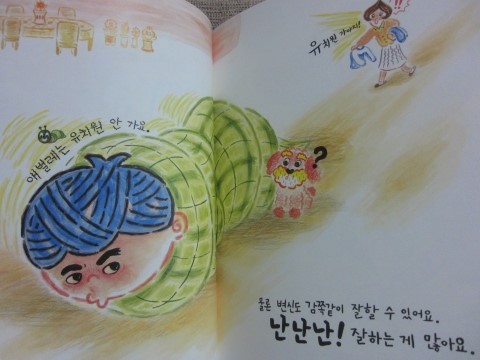 얘벌레는 유치원 안 가요.
유치원 가야지!
!!
?
물론 변신도 감쪽같이 잘할 수 있어요.
난난난! 잘하는 게 많아요.